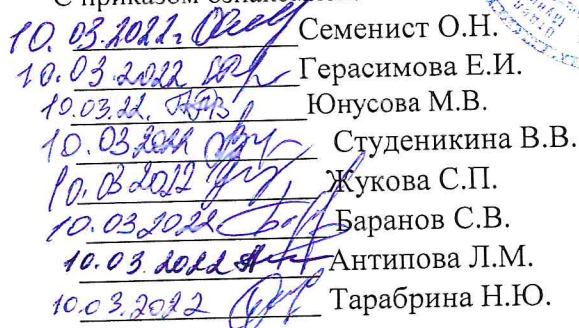 С приказом ознакомлены
10.03.2022г. Семенист О.Н.
10.03.2022 Герасимова Е.И.
10.03.22. Юнусова М.В.
10.03.2022 Студеникина В.В.
10.03.2022 Жукова С.П.
10.03.2022 Баранов С.В.
10.03.2022 Антипова Л.М.
10.03.2022 Тарабрина Н.Ю.